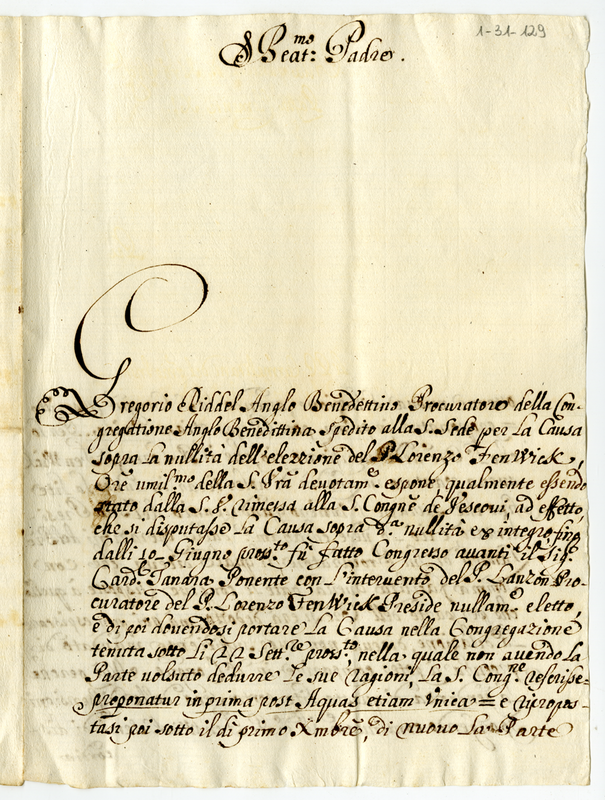 1-31-129
Beat:mo Padre.
Gregorio Riddel Anglo Benedettino Procuratore della Con-
gregatione Anglo Benedittina spedito alla S. Sede per La Causa
sopra La nullità dell'elezzione del P. Lorenzo FenWick,
Ore umil:mo della S. Vra devotam.e espone, qualmente essendo
stato dalla S. S. rimessa alla S. Congne de Vescovi, ad effetto,
che si disputasse La Causa sopra d.a nullità ex integro fino
dalli 10 Giugno pross.to fu fatto Congresso avanti il Sig.
Card.e Tanara Ponente con L'intervento del P. Lanzon Pro-
curatore del P. Lorenzo FenWick Preside nullam.e eletto,
e di poi dovendosi portare La Causa nella Congregazione
tenuta sotto Li 22 Sett.re pross.to, nella quale non avendo La
Parte volsuto dedurre Le sue ragioni, La S. Cong.ne rescrisse
proponatur in prima post Aquas etiam Vnica = e ripropos-
tasi poi sotto il di primo Xmbre, di nuovo La Parte